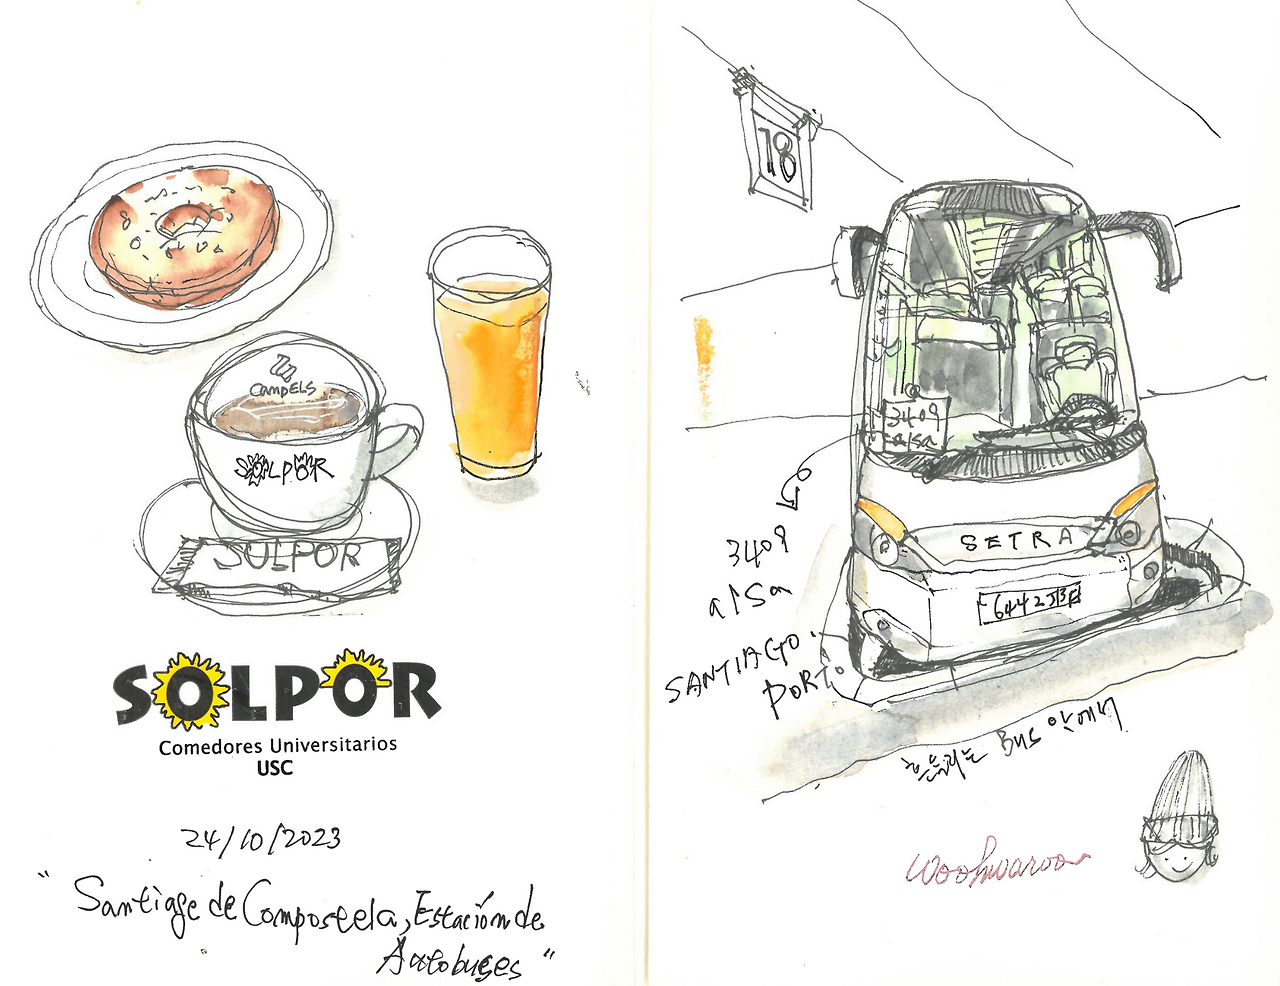 CANDELS
SOLPOR
SOLPOR
SOLPOR
Comedores Universitarios
USC
24/10/2023
"Santiago de Compostela, Estación de
Autobuses"
18
3409
alsa
SETRA
3409
alsa
SANTIAGO.
PORTO
흔들리는 Bus 안에서
woohwaroo